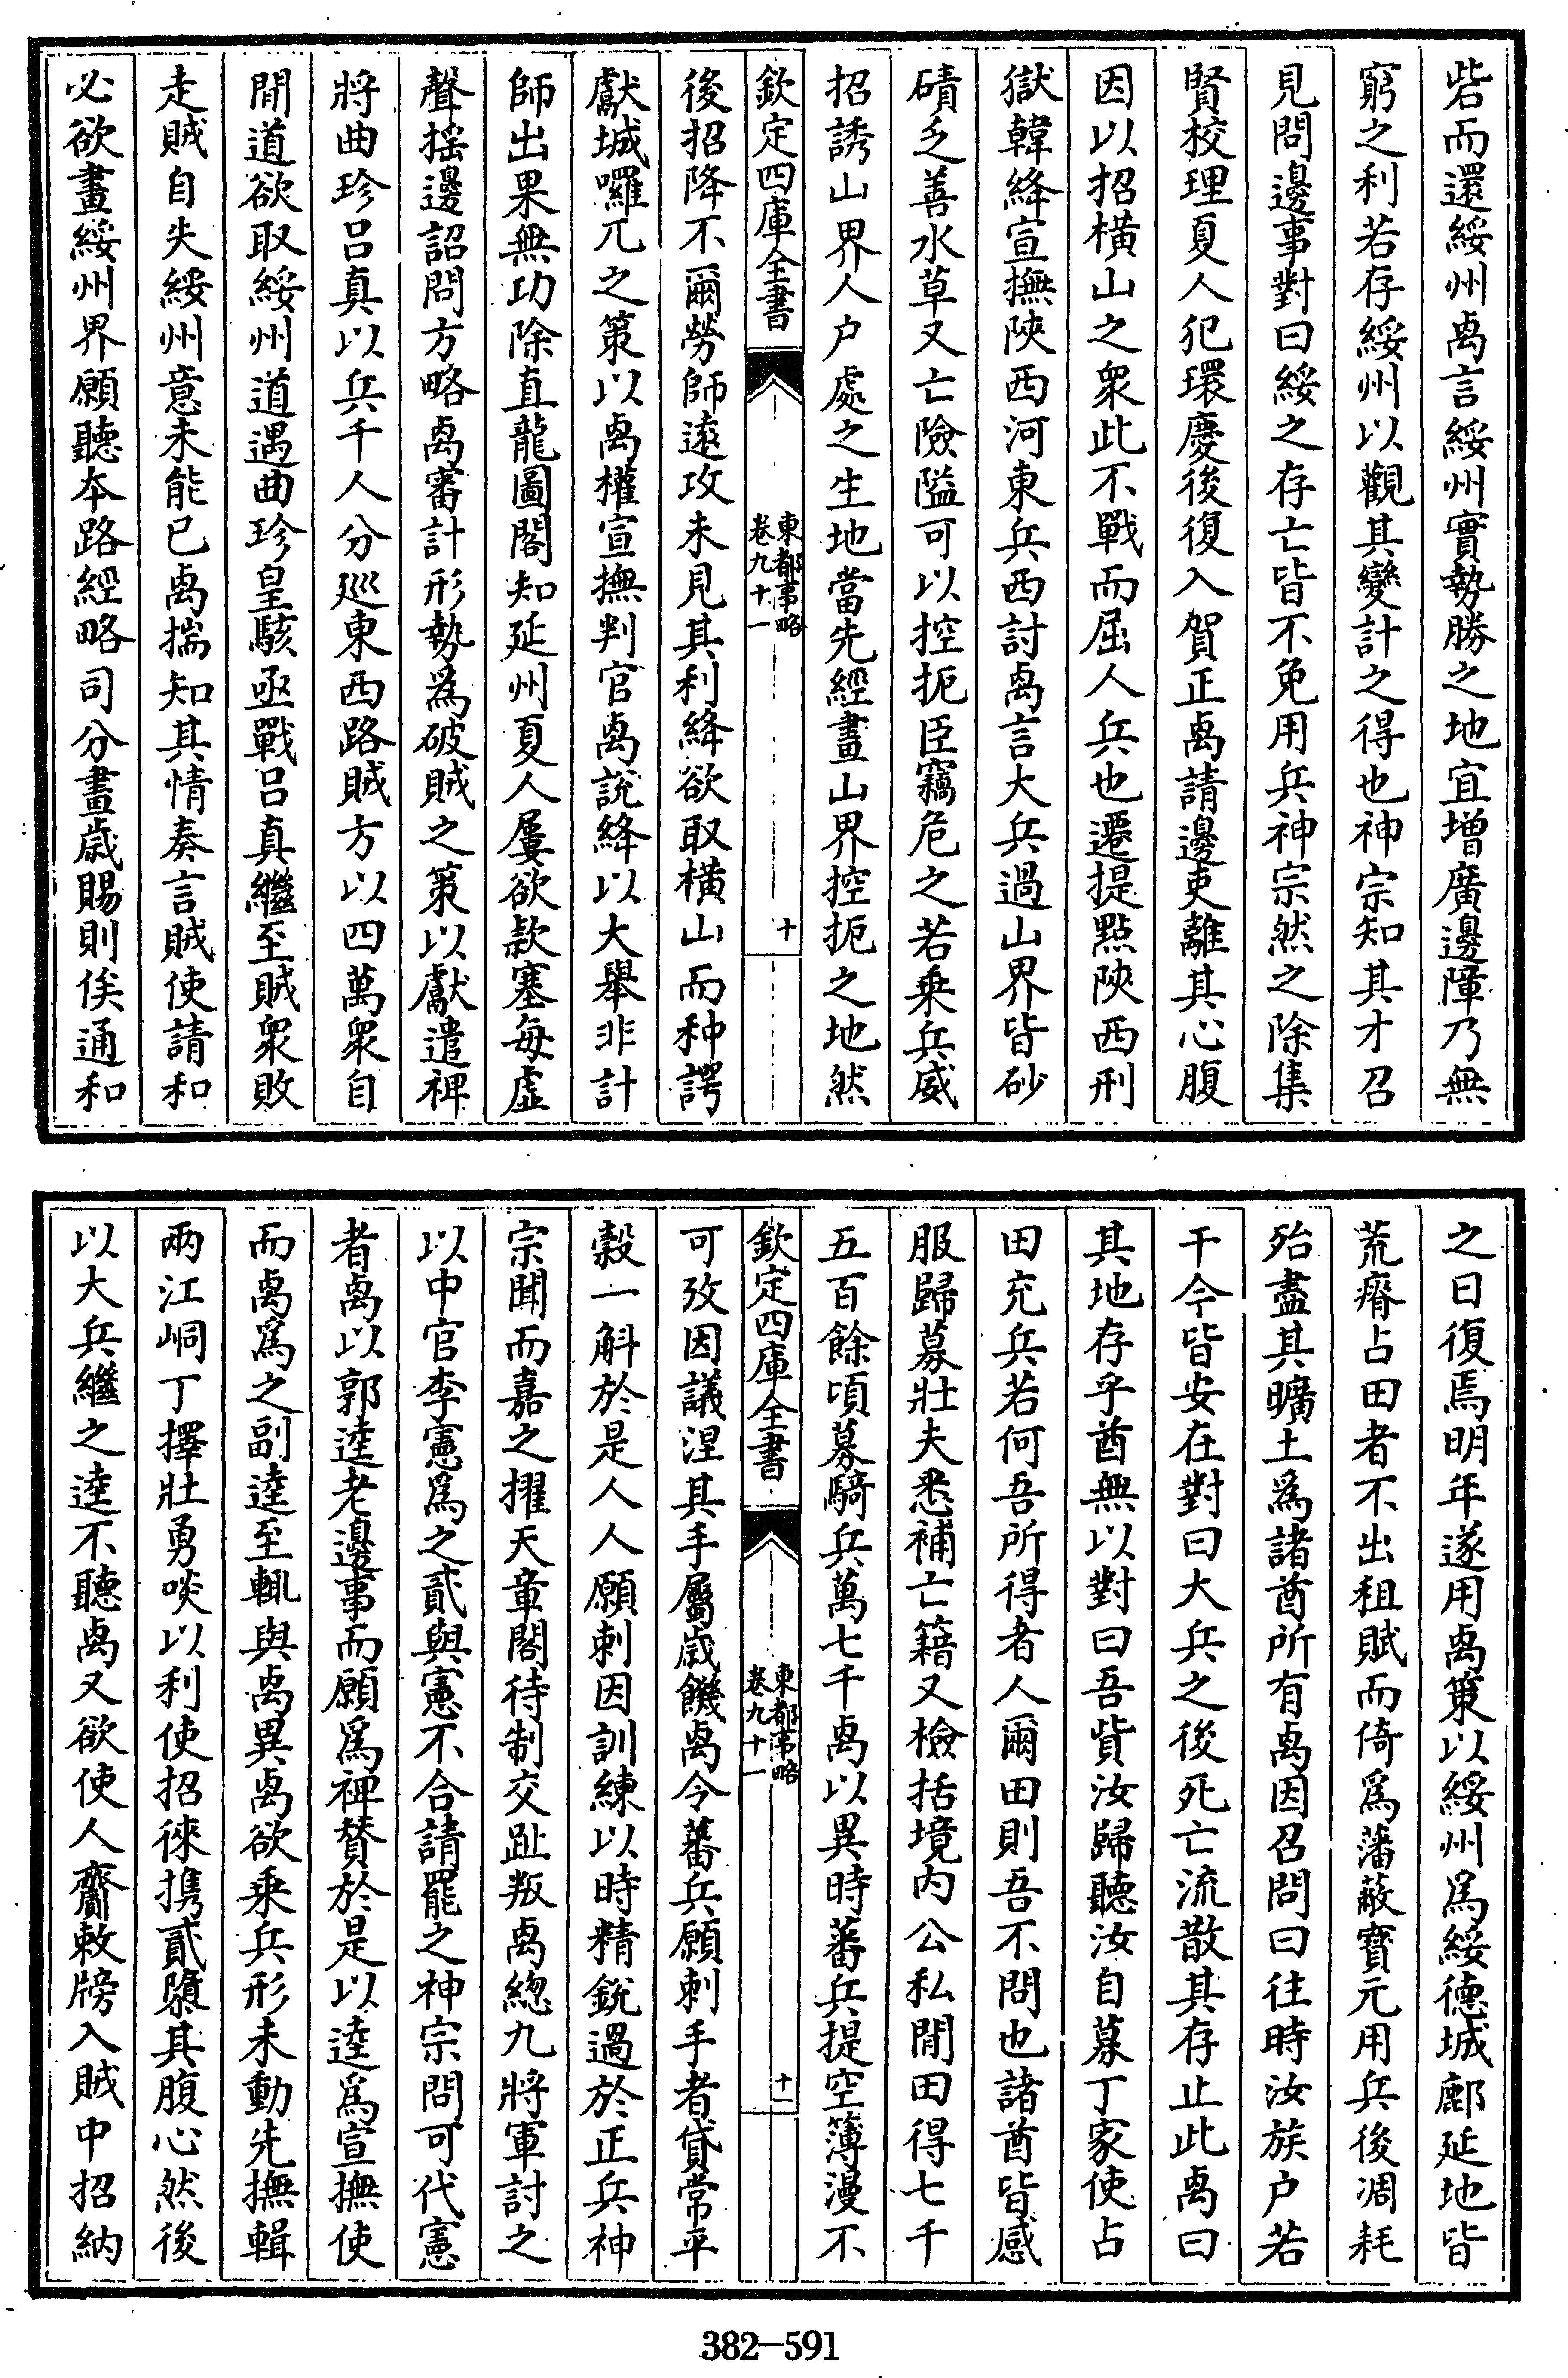 砦而還綏州卨言綏州實勢勝之地宜增廣邊障乃無
窮之利若存綏州以觀其變計之得也神宗知其才召
見問邊事對曰綏之存亡皆不免用兵神宗然之除集
賢校理夏人犯環慶後復入賀正卨請邊吏離其心腹
因以招横山之衆此不戰而屈人兵也遷提點陜西刑
獄韓絳宣撫陜西河東兵西討卨言大兵過山界皆砂
磧乏善水草又亡險隘可以控扼臣竊危之若乘兵威
招誘山界人户處之生地當先經畫山界控扼之地然
欽定四庫全書
東都事略
卷九十一
十
後招降不爾勞師逺攻未見其利絳欲取横山而种諤
獻城囉兀之策以卨權宣撫判官卨說絳以大舉非計
師出果無功除直龍圖閣知延州夏人屢欲款塞每虚
聲揺邊詔問方略卨審計形勢為破賊之策以獻遣裨
將曲珍吕真以兵千人分廵東西路賊方以四萬衆自
間道欲取綏州道遇曲珍皇駭亟戰吕真繼至賊衆敗
走賊自失綏州意未能已卨揣知其情奏言賊使請和
必欲畫綏州界願聽本路經略司分畫歲賜則俟通和
之日復焉明年遂用卨策以綏州為綏德城鄜延地皆
荒瘠占田者不出租賦而倚為藩蔽寳元用兵後凋耗
殆盡其曠土為諸酋所有卨因召問曰往時汝族户若
干今皆安在對曰大兵之後死亡流散其存止此卨曰
其地存乎酋無以對曰吾貲汝歸聽汝自募丁家使占
田充兵若何吾所得者人爾田則吾不問也諸酋皆感
服歸募壯夫悉補亡籍又檢括境内公私閒田得七千
五百餘頃募騎兵萬七千卨以異時蕃兵提空簿漫不
欽定四庫全書
東都事略
卷九十一
十一
可攷因議涅其手屬歲饑卨令蕃兵願刺手者貸常平
榖一斛於是人人願刺因訓練以時精銳過於正兵神
宗聞而嘉之擢天章閣待制交趾叛卨總九將軍討之
以中官李憲為之貳與憲不合請罷之神宗問可代憲
者卨以郭逵老邊事而願為裨賛於是以逵為宣撫使
而卨為之副逵至輒與卨異卨欲乘兵形未動先撫輯
兩江峒丁擇壯勇啖以利使招徠携貳隳其腹心然後
以大兵繼之逵不聽卨又欲使人齎敕牓入賊中招納
382-591